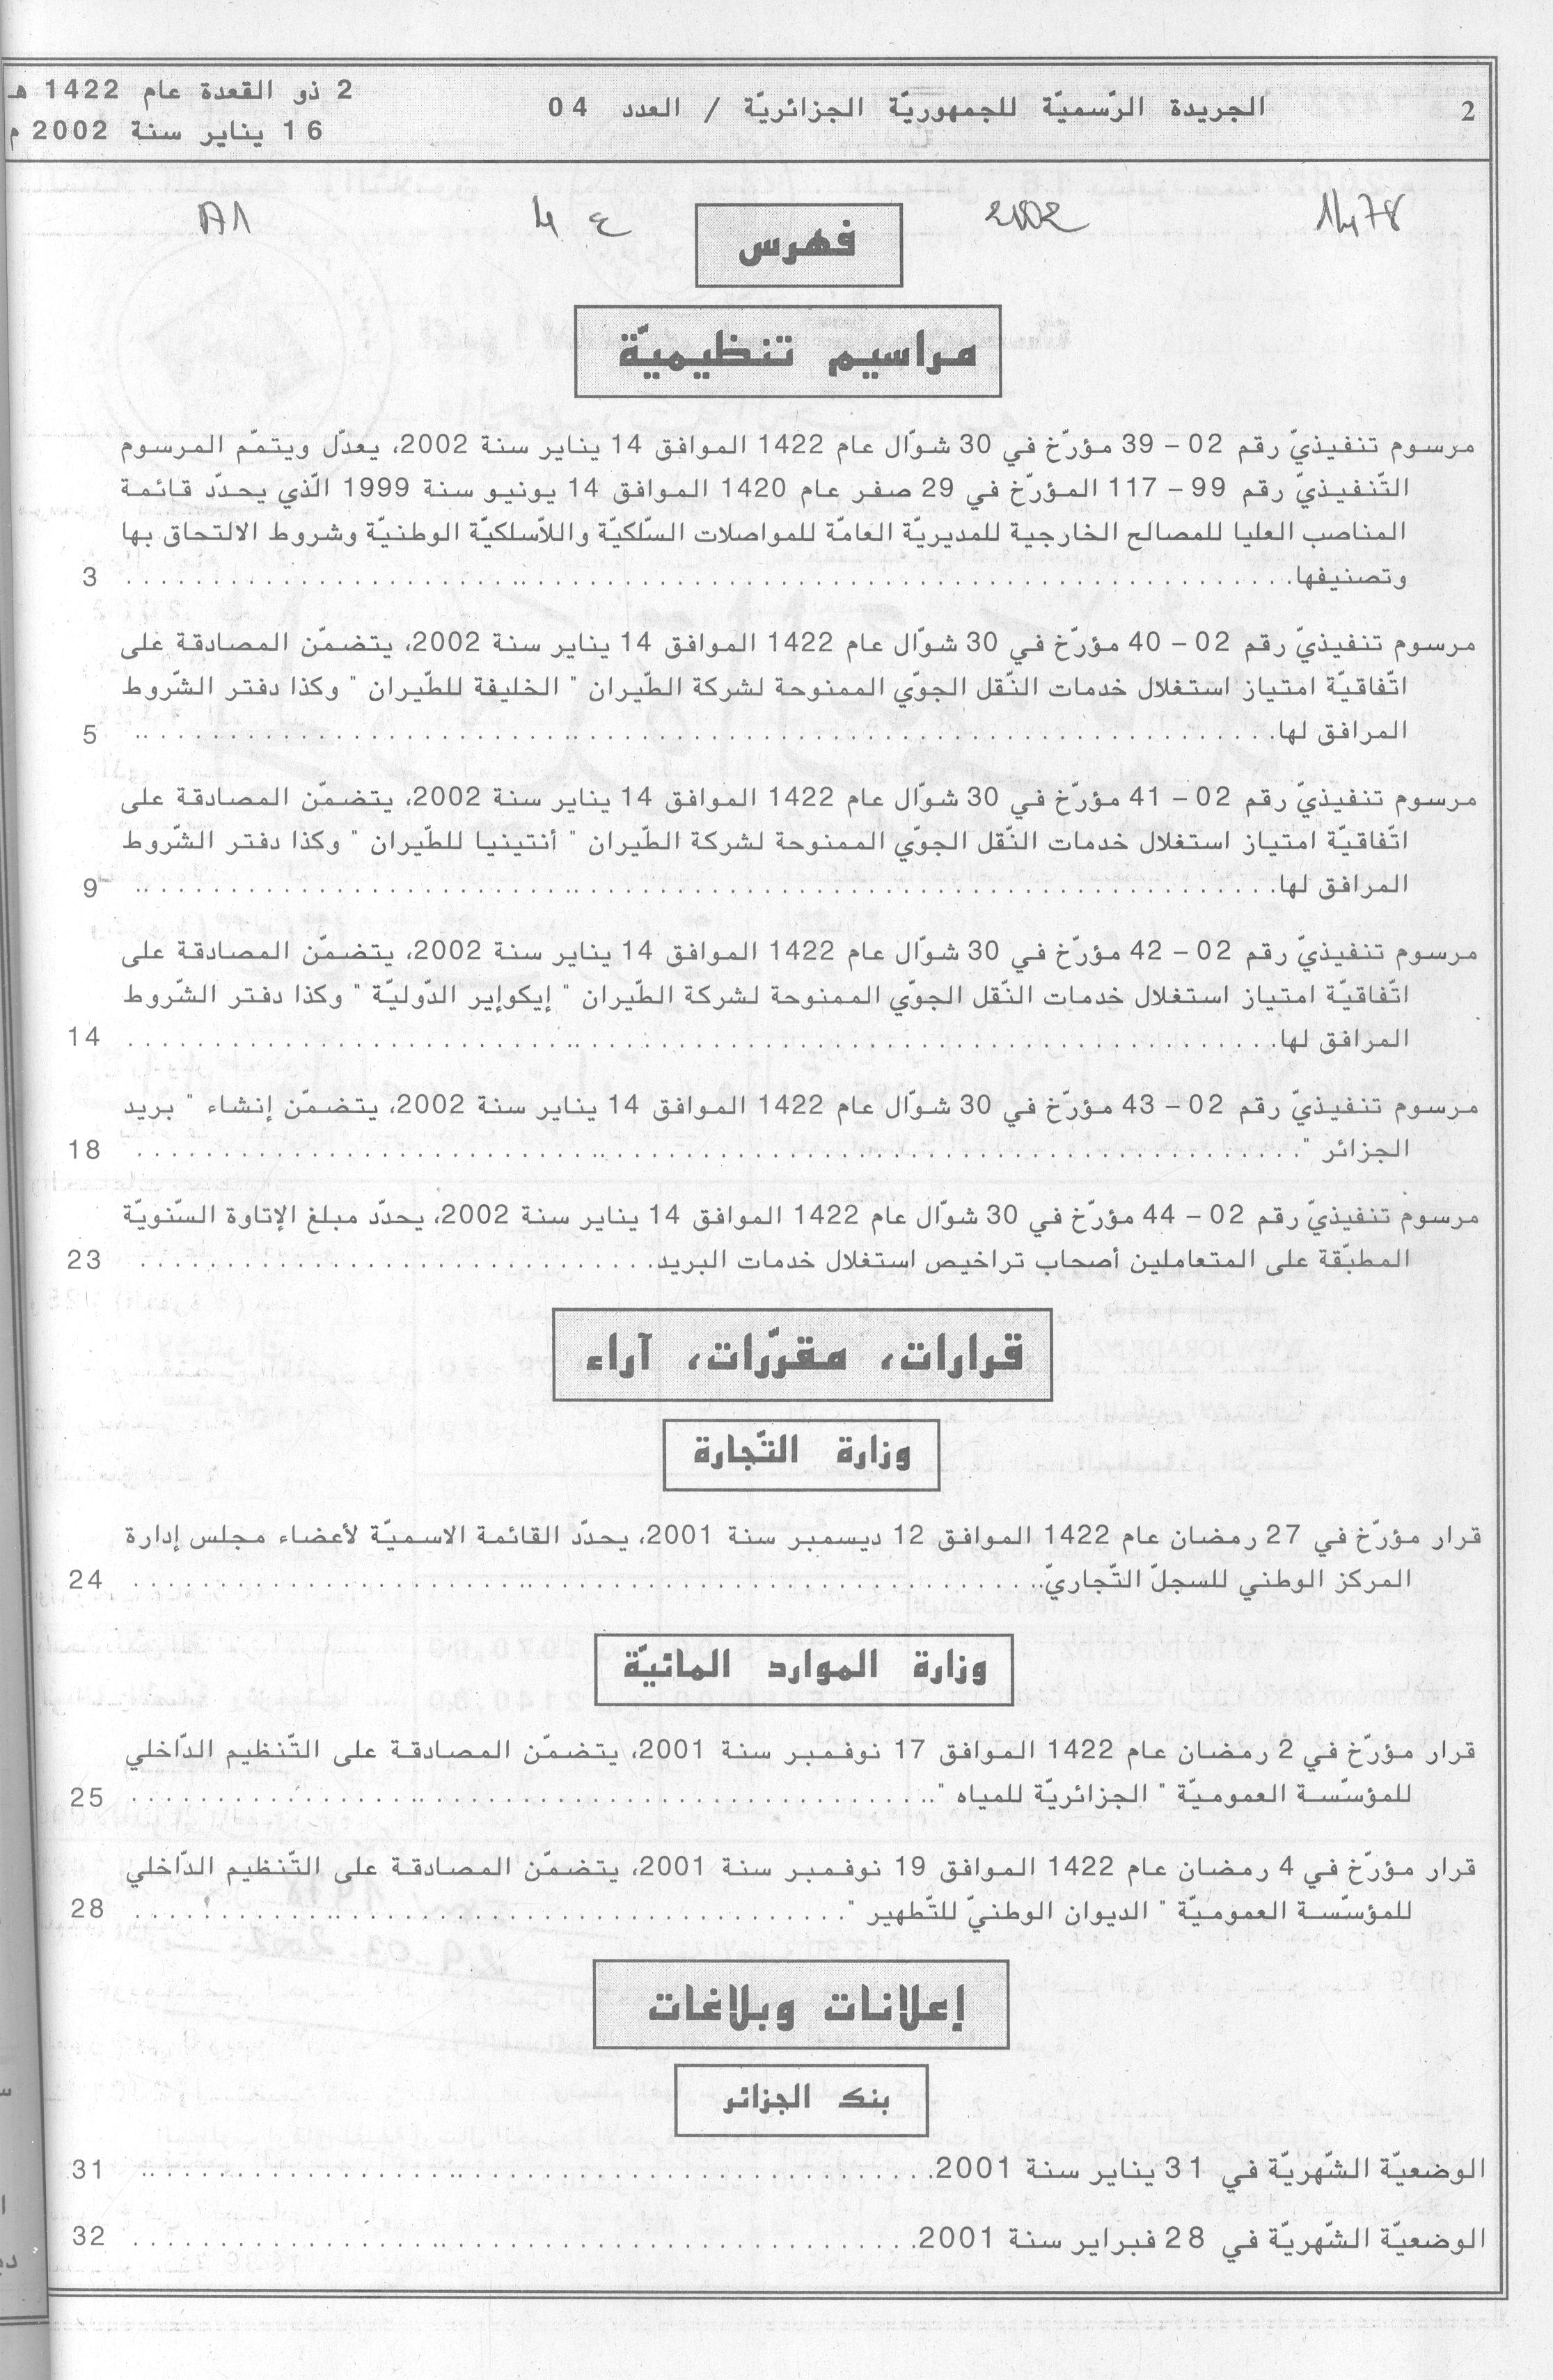 2
الجريدة الرّسميّة للجمهوريّة الجزائريّة / العدد 04
2 ذو القعدة عام 1422 هـ
16 يناير سنة 2002 م
1478
2002
4 ع
A1
فهرس
مراسيم تنظيميّة
مرسوم تنفيذيّ رقم 02 – 39 مؤرّخ في 30 شوّال عام 1422 الموافق 14 يناير سنة 2002، يعدّل ويتمّم المرسوم
التّنفيذيّ رقم 99 – 117 المؤرّخ في 29 صفر عام 1420 الموافق 14 يونيو سنة 1999 الّذي يحدّد قائمة
المناصب العليا للمصالح الخارجية للمديريّة العامّة للمواصلات السّلكيّة واللاّسلكيّة الوطنيّة وشروط الالتحاق بها
وتصنيفها........................ 3
مرسوم تنفيذيّ رقم 02 – 40 مؤرّخ في 30 شوّال عام 1422 الموافق 14 يناير سنة 2002، يتضمّن المصادقة على
اتّفاقيّة امتياز استغلال خدمات النّقل الجوّي الممنوحة لشركة الطّيران " الخليفة للطّيران " وكذا دفتر الشّروط
المرافق لها........................ 5
مرسوم تنفيذيّ رقم 02 – 41 مؤرّخ في 30 شوّال عام 1422 الموافق 14 يناير سنة 2002، يتضمّن المصادقة على
اتّفاقيّة امتياز استغلال خدمات النّقل الجوّي الممنوحة لشركة الطّيران " أنتينيا للطّيران " وكذا دفتر الشّروط
المرافق لها........................ 9
مرسوم تنفيذيّ رقم 02 – 42 مؤرّخ في 30 شوّال عام 1422 الموافق 14 يناير سنة 2002، يتضمّن المصادقة على
اتّفاقيّة امتياز استغلال خدمات النّقل الجوّي الممنوحة لشركة الطّيران " إيكوإير الدّوليّة " وكذا دفتر الشّروط
المرافق لها........................ 14
مرسوم تنفيذيّ رقم 02 – 43 مؤرّخ في 30 شوّال عام 1422 الموافق 14 يناير سنة 2002، يتضمّن إنشاء " بريد
الجزائر "........................ 18
مرسوم تنفيذيّ رقم 02 – 44 مؤرّخ في 30 شوّال عام 1422 الموافق 14 يناير سنة 2002، يحدّد مبلغ الإتاوة السّنويّة
المطبّقة على المتعاملين أصحاب تراخيص استغلال خدمات البريد........................ 23
قرارات، مقرّرات، آراء
وزارة التّجارة
قرار مؤرّخ في 27 رمضان عام 1422 الموافق 12 ديسمبر سنة 2001، يحدّد القائمة الاسميّة لأعضاء مجلس إدارة
المركز الوطني للسجلّ التّجاريّ........................ 24
وزارة الموارد المائيّة
قرار مؤرّخ في 2 رمضان عام 1422 الموافق 17 نوفمبر سنة 2001، يتضمّن المصادقة على التّنظيم الدّاخلي
للمؤسّسة العموميّة " الجزائريّة للمياه "........................ 25
قرار مؤرّخ في 4 رمضان عام 1422 الموافق 19 نوفمبر سنة 2001، يتضمّن المصادقة على التّنظيم الدّاخلي
للمؤسّسة العموميّة " الديوان الوطنيّ للتّطهير "........................ 28
إعلانات وبلاغات
بنك الجزائر
الوضعيّة الشّهريّة في 31 يناير سنة 2001........................ 31
الوضعيّة الشّهريّة في 28 فبراير سنة 2001........................ 32